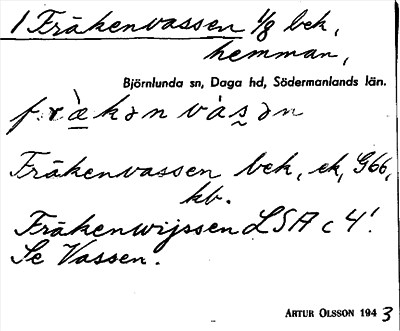 1 Fräkenvassen 1/8 bek,
hemman,
Björnlunda sn, Daga hd, Södermanlands län.
fræ̀kən vàs̰ən
Fräkenvassen bek, ek, G66,
kb.
Fräkenwijssen LSA c 4!
Se Vassen.
ARTUR OLSSON 1943